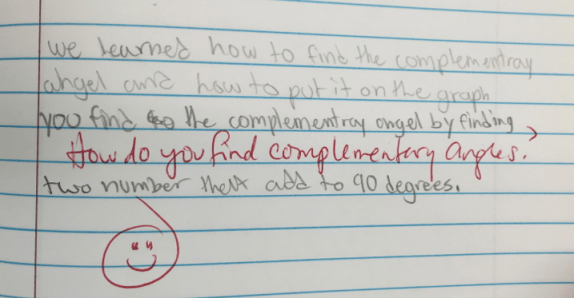 we learned how to find the complementray
angel and how to put it on the graph
you find to the complementray angel by finding
How do you find complementary angles?
two number that add to 90 degrees.